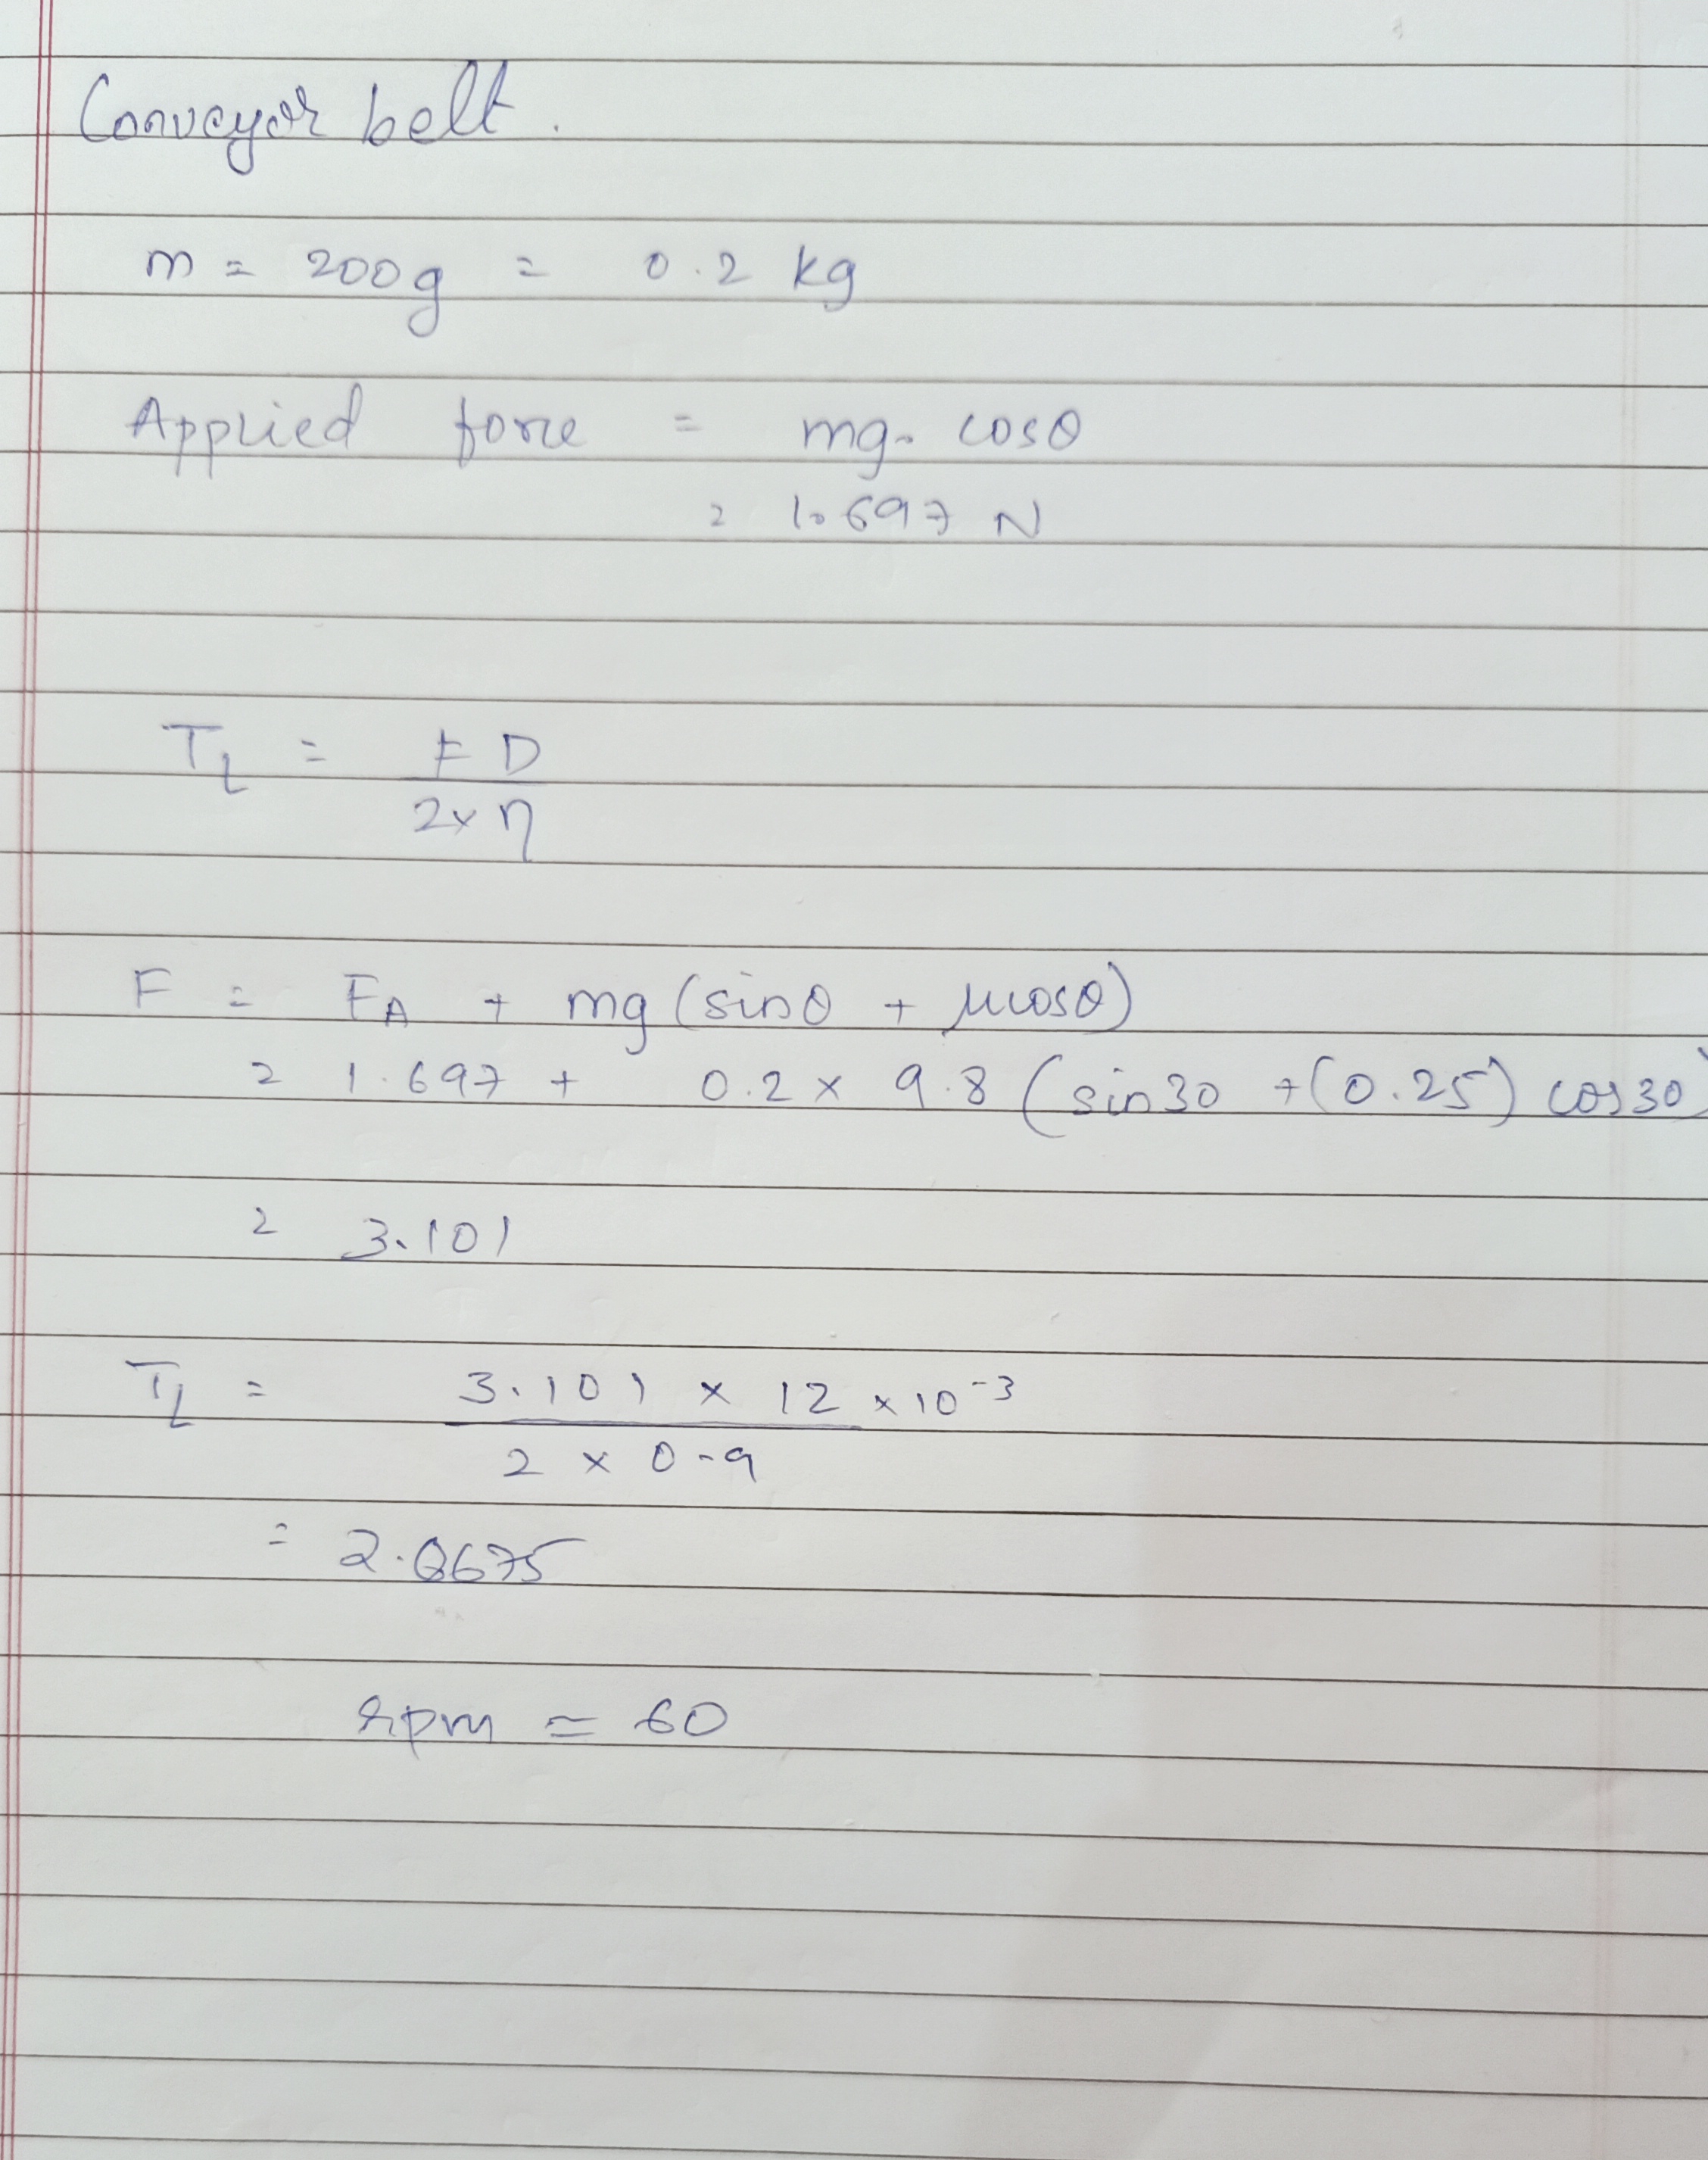 Conveyor belt.
m = 200g = 0.2 kg
Applied force = mg. cosθ
= 1.697 N
T_L = F D
2×η
F = F_A + mg (sinθ + μcosθ)
= 1.697 + 0.2 × 9.8 (sin30 + (0.25) cos30)
= 3.101
T_L = 3.101 × 12 × 10^-3
2 × 0.9
= 2.0675
rpm = 60